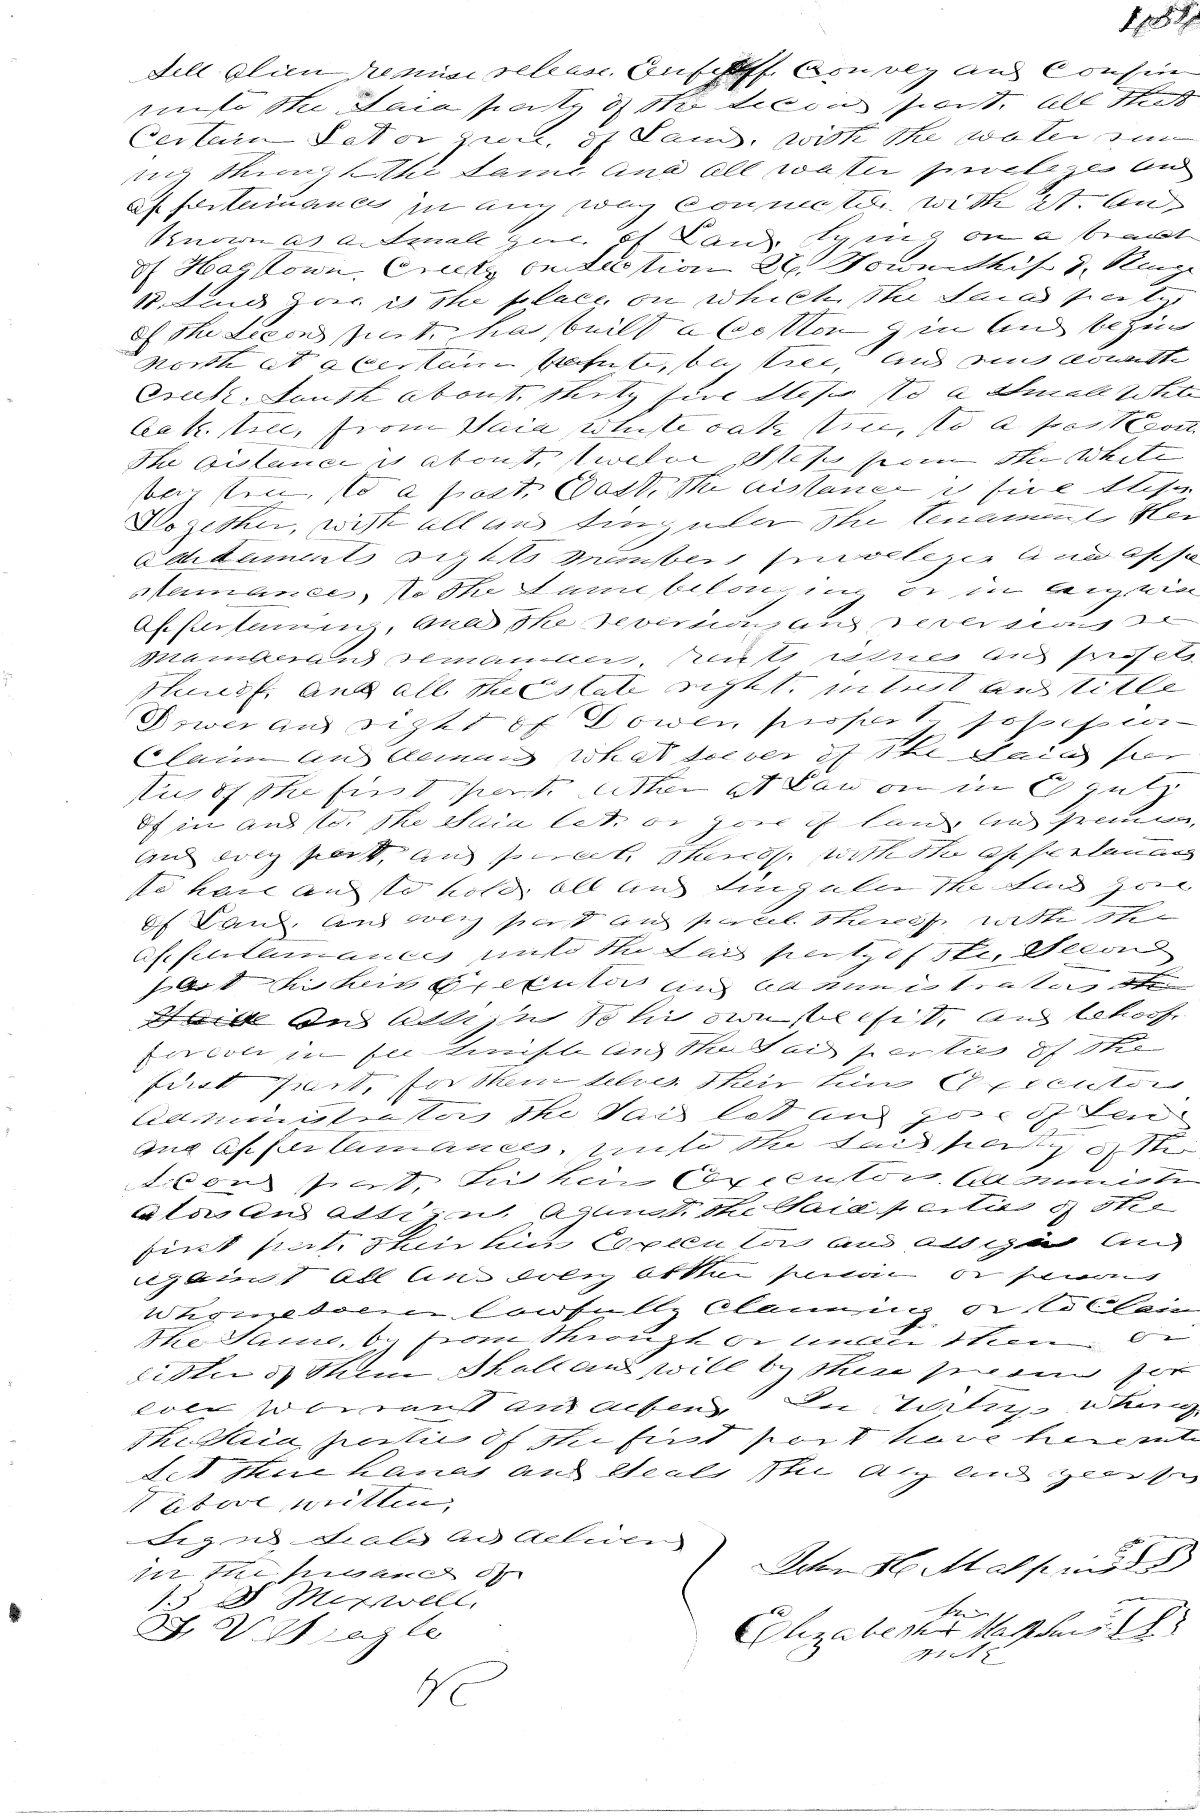 Sell alien remise release. Enfeoff. Convey and Confirm
unto the Said party of the Second part. all that
Certain Lot or gore. of Land. with the water run
ing through the Same and all water priveleges and
appertainances in any way connected with it. and
Known as a Small gore. of Land, lying on a branch
of Hogtown. Creek, on Section 26, Township 9, Range
18. Said gore is the place on which the Said party
of the Second part. has, built a Cotton gin and begins
North at a certain white, bay tree, and runs down the
Creek. South about. thirty five Steps to a Small White
Oak. tree, from Said white oak tree, to a post East.
the distance is about, twelve Steps from the White
bay tree, to a post, East, the distance is five steps.
Together, with all and Singuler the tenaments Her
aditaments rights members priveleges and appe
rtainances, to the Same belonging or in anywise
appertaining, and the reversion and reversions re
mainder and remainders. rents issues and profets
thereof. and all the Estate right. intrest and title
Dower and right of Dower, property possession
Claim and demand what soever of the Said par
ties of the first part. either at Law or in Equity
of in and to. the Said lot. or gore of land, and premises,
and every part, and parcel. thereof. with the appertanances
to have and to hold. all and Singuler the Said gore
of Land, and every part and parcel thereof. with the
appertainances unto the Said party of the, Second
part his heirs Executors and administrators the
Said and assigns to his own benefit, and behoof.
forever in fee Simple and the Said parties of the
first part, for them selves their heirs Executors
administrators the Said lot and gore of Land
and appertainances. unto the Said party of the
Second part, his heirs Executors. Administr
ators and assigns against, the Said parties of the
first part. their heirs Executors and assigns and
against all and every other person or persons
whomesoever lawfully Claiming or to Claim
the Same, by from through or under them or
either of them Shall and will by these presents for
ever warrant and defend In Witness whereof,
the Said parties of the first part have hereunto
Set there hands and Seals the day and year firs
t above written,
Signd Seald and deliverd
in the presance of
B D Maxwell,
John H. Malphus
her
Elizabeth x Malphus
mark